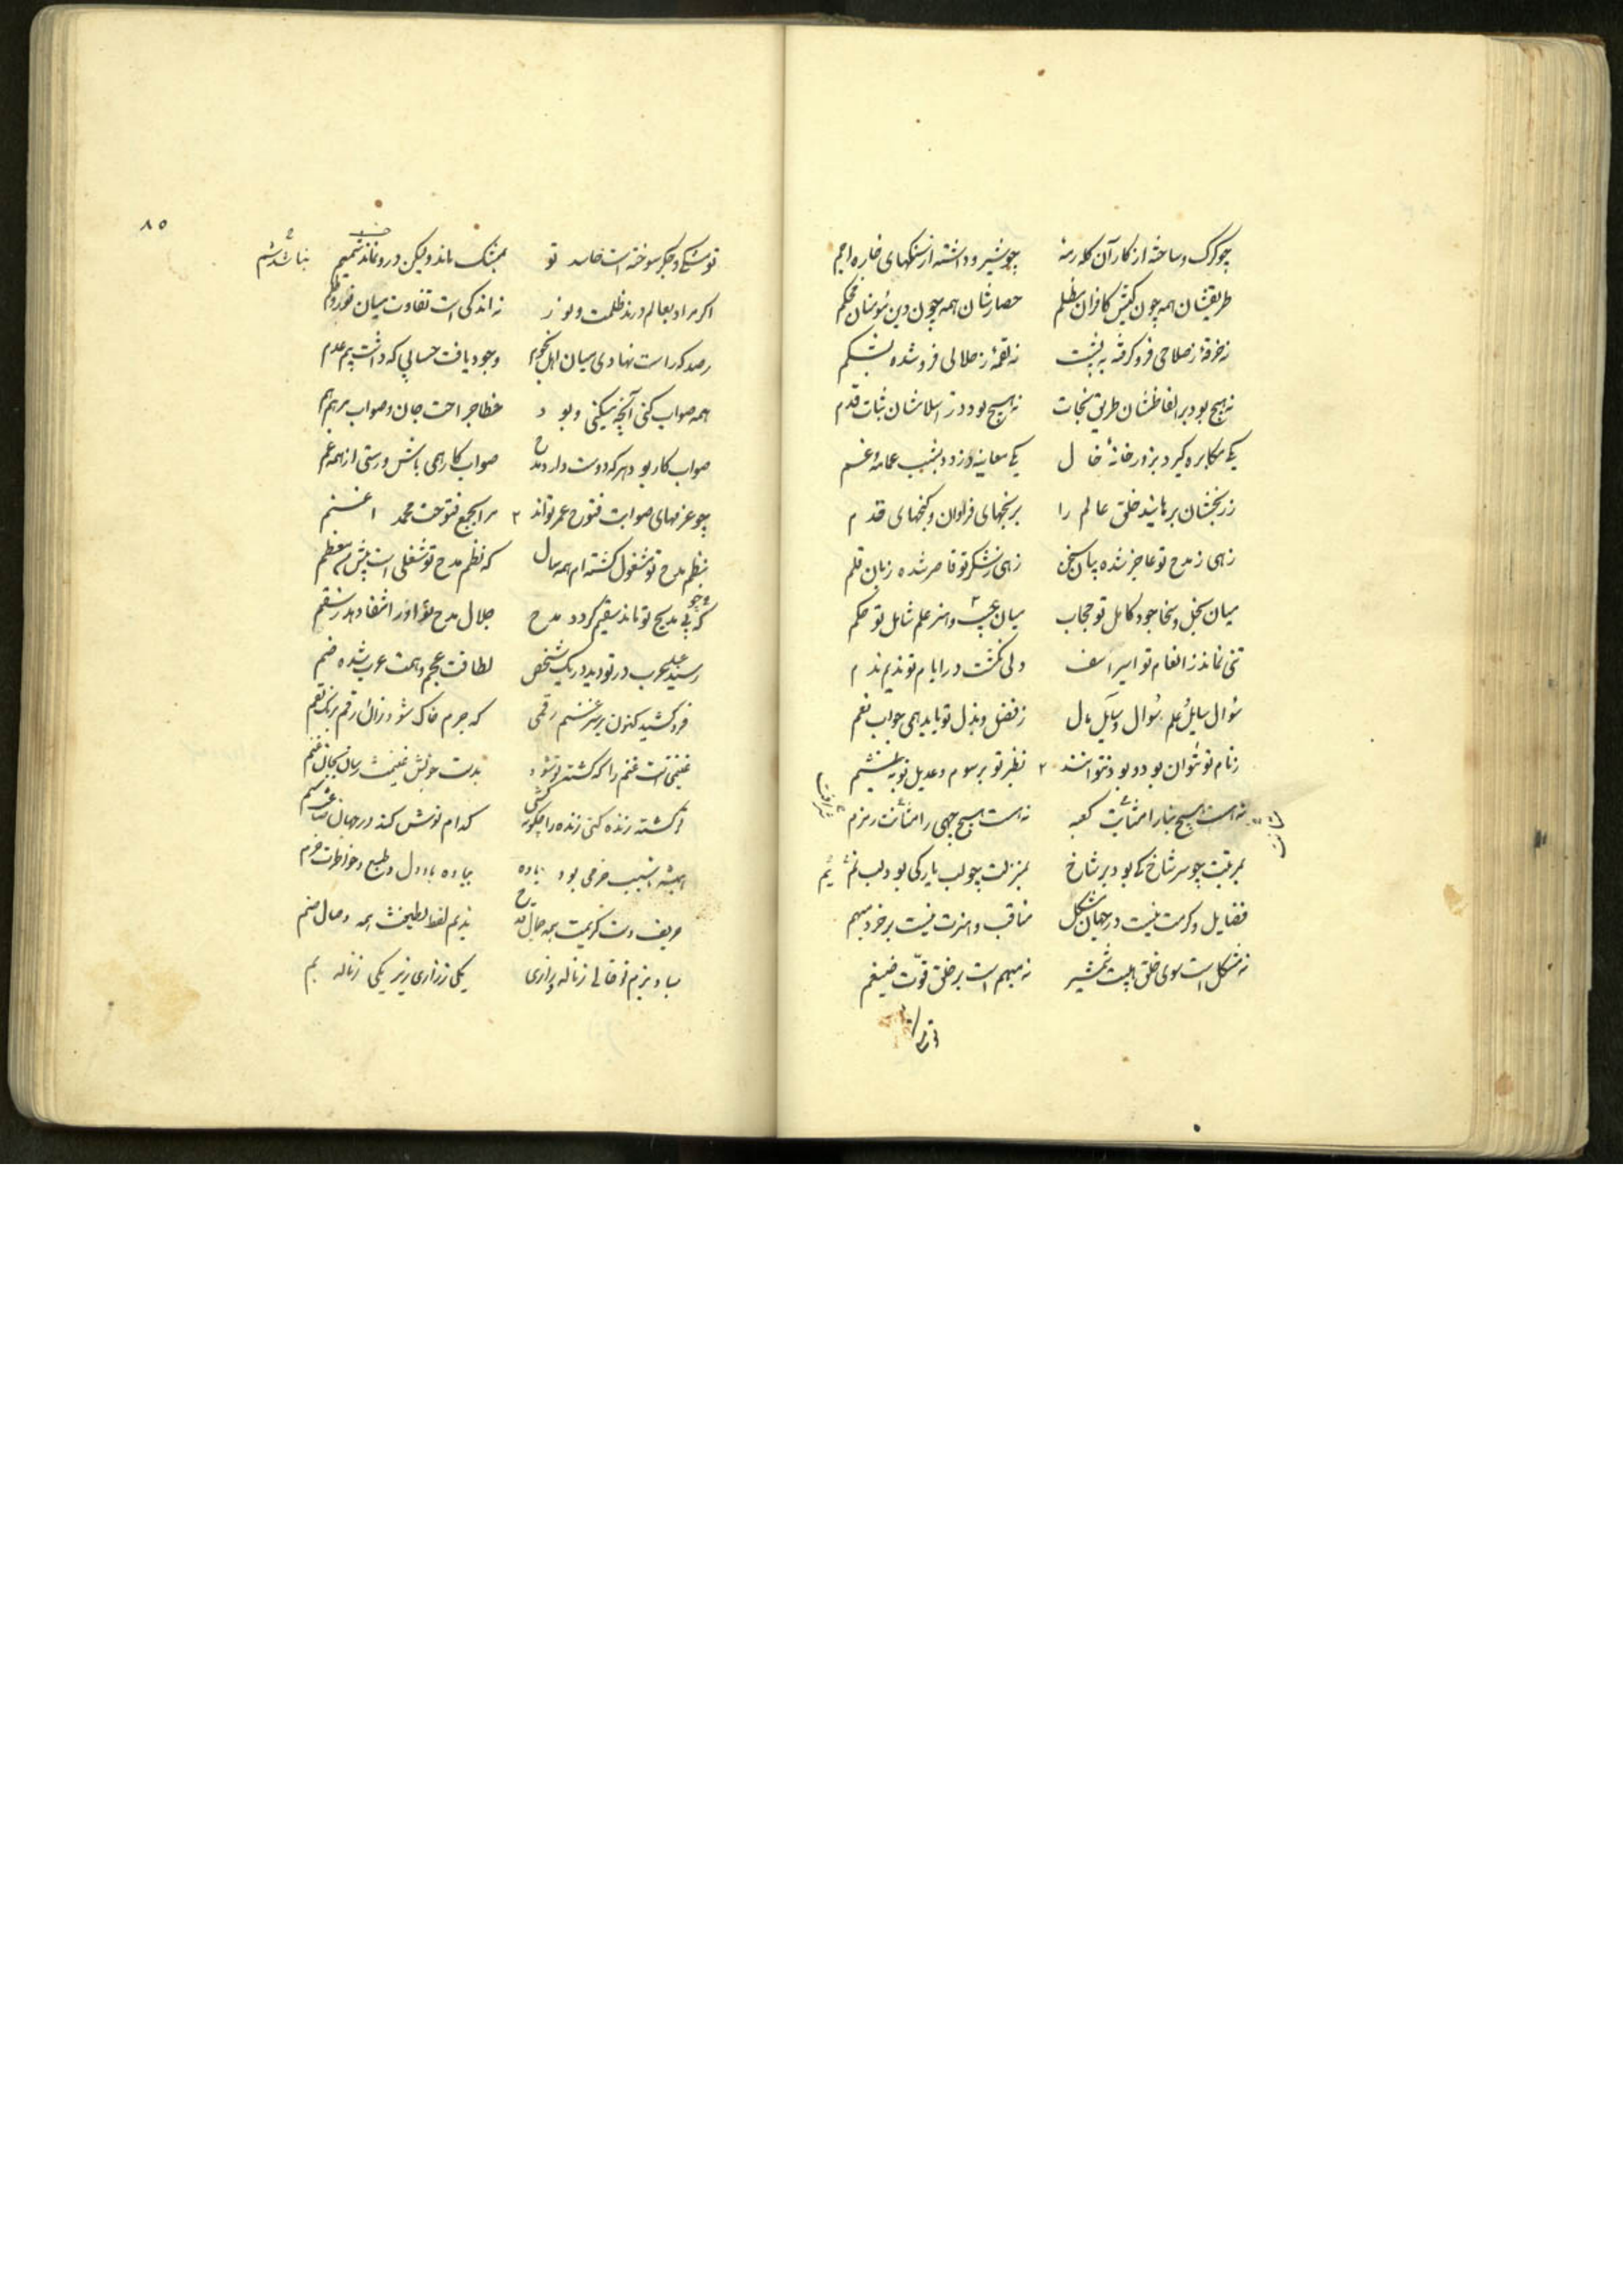 چو کرک و ساخته از کار آن کله رمه چو شیر و داشته از سنکهای خاره اجم
طریقشان همه چون کیش کافران مظلم حصارشان همه چون دین مؤمنان محکم
نه خرقهٔ ز صلاحی فرو کرفته به پشت نه لقمهٔ ز حلالی فرو شده بشکم
نه هیچ بود بر الفاظشان طریق نجات نه هیچ بود در اسلامشان ثبات قدم
یکی مکابره کیرد بزور خانهٔ خال یکی معاینه دزدد بشب عمامهٔ عم
ز رنجشان برهانید خلق عالم را برنجهای فراوان و کنجهای قدم
زهی ز مدح تو عاجز شده بیان سخن زهی ز شکر تو قاصر شده زبان قلم
میان بخل و سخا جود کامل تو حجاب میان عیب و هنر علم شامل تو حکم
تنی نماند ز انعام تو اسیر اسف دلی نکشت در ایام تو ندیم ندم
سؤال سایل علم و سؤال سایل مال ز فضل و بذل تو یابد همی جواب نعم
ز نام تو نتوان بود و بود نتوانند نظر تو برسوم و عدیل تو بشیم
نه است هیچ بنا را مثابت کعبه نه است هیچ چهی را مثابت زمزم
بمرتبت چو سر شاخ کی بود بر شاخ بمنزلت چو لب یار کی بود لب یم
فضایل و کرمت نیست در جهان مشکل مناقب و هنرت نیست بر خرد مبهم
نه مشکل است سوی خلق هیبت شمشیر نه مبهم است بر خلق قوت ضیغم
۸۵
تو مشکی و جکر سوخته است حاسد تو بمشک ماند ولیکن درو نماند شمیم نباشد شم
اکر مراد بعالم درند ظلمت و نور نه اندکی است تفاوت میان نور و ظلم
رصد که راست نهادی میان اهل نجوم وجود یافت حسابی که داشت بیم عدم
همه صواب کنی آنچه میکنی و بود خطا جراحت جان و صواب مرهم هم
صواب کار بود هر که دوست دارد مدح صواب کار همی باش و رستی از همه غم
چو عزمهای صوابت فتوح عمر تواند مرا بجمع فتوحت محمد اعثم
بنظم مدح تو مشغول کشته ام همه سال که نظم مدح تو شغلی است پیش من معظم
که بی مدیح تو ماند سقیم کردد مدح جلال مدح تو او را شفا دهد ز سقم
رسید عجم و عرب در تو دید در یک شخص لطافت عجم و همت عرب شده ضم
فرو کشید کنون بر سر غنم رقمی که جرم خاک شود زان رقم برنک بقم
غنیمتی است غنم را که کشتهٔ تو شود بدست خویش غنیمت رسان بجان غنم
تو کشته زنده کنی زنده را چکونه کشی کدام نوش کند در جهان
همیشه تا سبب خرمی بود باده بباده باد دل و طبع و خاطرت خرم
حریف دست کریمت همه جمال قدح ندیم لفظ لطیفت همه وصال صنم
مباد بزم تو خالی ز ناله و زاری یکی ز زاری زیر یکی ز ناله بم